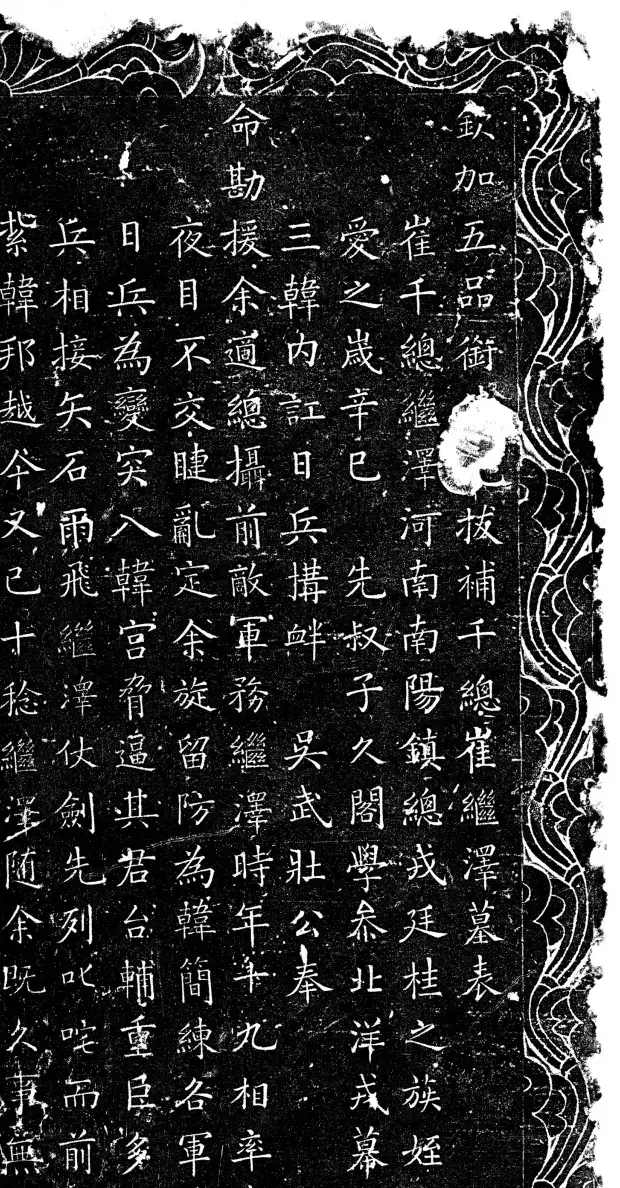 欽加五品銜拔補千總崔繼澤墓表
崔千總繼澤河南南陽鎮總戎廷桂之族姪
愛之歲辛巳先叔子久閣學參北洋戎幕
三韓内訌日兵搆衅吳武壯公奉
命勘援余適總攝前敵軍務繼澤時年十九相率
夜目不交睫亂定余旋留防為韓簡練各軍
日兵為變突入韓宮脅逼其君台輔重臣多
兵相接矢石雨飛繼澤仗劍先列叱咤而前
紮韓邦越今又已十稔繼澤随余既久事無